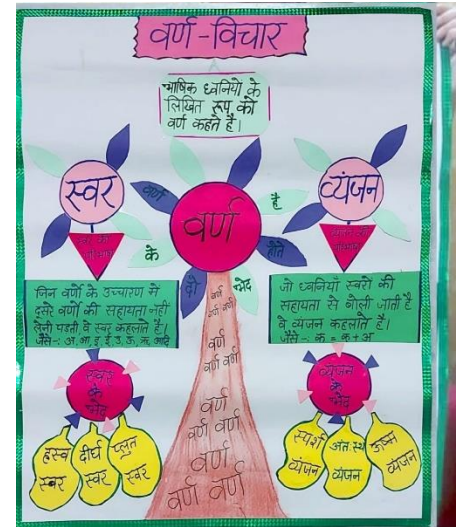 वर्ण-विचार
भाषिक ध्वनियों के
लिखित रूप को
वर्ण कहते है।
स्वर
व्यंजन
वर्ण
वर्ण
के
दो
भेद
होते
है
स्वर की
परिभाषा
व्यंजन की
परिभाषा
जिन वर्णों के उच्चारण में
दूसरे वर्णों की सहायता नहीं
लेनी पड़ती, वे स्वर कहलाते हैं।
जैसे-: अ, आ, इ, ई, उ, ऊ, ऋ, आदि
जो ध्वनियाँ स्वरों की
सहायता से बोली जाती है
वे व्यंजन कहलाते है।
जैसे-: क = क् + अ
स्वर
के
भेद
व्यंजन
के
भेद
ह्रस्व
स्वर
दीर्घ
स्वर
प्लुत
स्वर
स्पर्श
व्यंजन
अंतःस्थ
व्यंजन
ऊष्म
व्यंजन
वर्ण
वर्ण वर्ण
वर्ण
वर्ण वर्ण
वर्ण
वर्ण वर्ण
वर्ण
वर्ण वर्ण